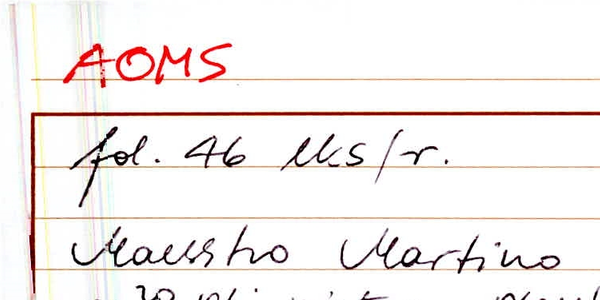 AOMS
fol. 46 lks/r.
Maestro Martino